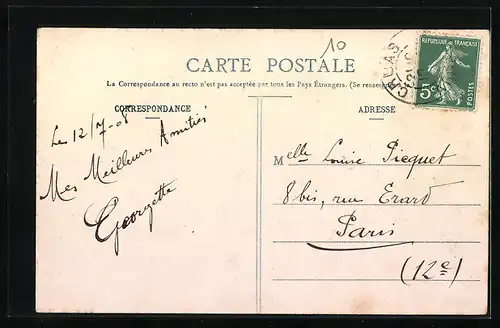 10
CARTE POSTALE
La Correspondance au recto n'est pas acceptée par tous les Pays Étrangers. (Se renseigner
CORRESPONDANCE
ADRESSE
REPUBLIQUE FRANÇAISE
5c
POSTES
CALAIS
Le 12/7-08
Mes Meilleures Amitiés
Georgette
Melle Louise Piequet
8 bis, rue Erard
Paris
(12e)